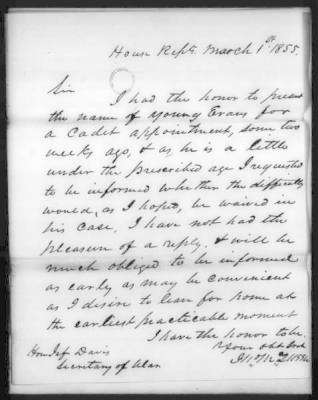 House Rep^s. March 1^st. 1855.
Sir
I had the honor to present
the name of Young Evans for
a Cadet appointment, some two
weeks ago, & as he is a little
under the prescribed age I requested
to be informed whether the difficulty
would, as I hoped, be waived in
his case. I have not had the
pleasure of a reply. & will be
much obliged to be informed
as early as may be convenient
as I desire to leave for home at
the earliest practicable moment
I have the honor to be
Your Obt Servt
Hon Jef Davis
Secretary of War